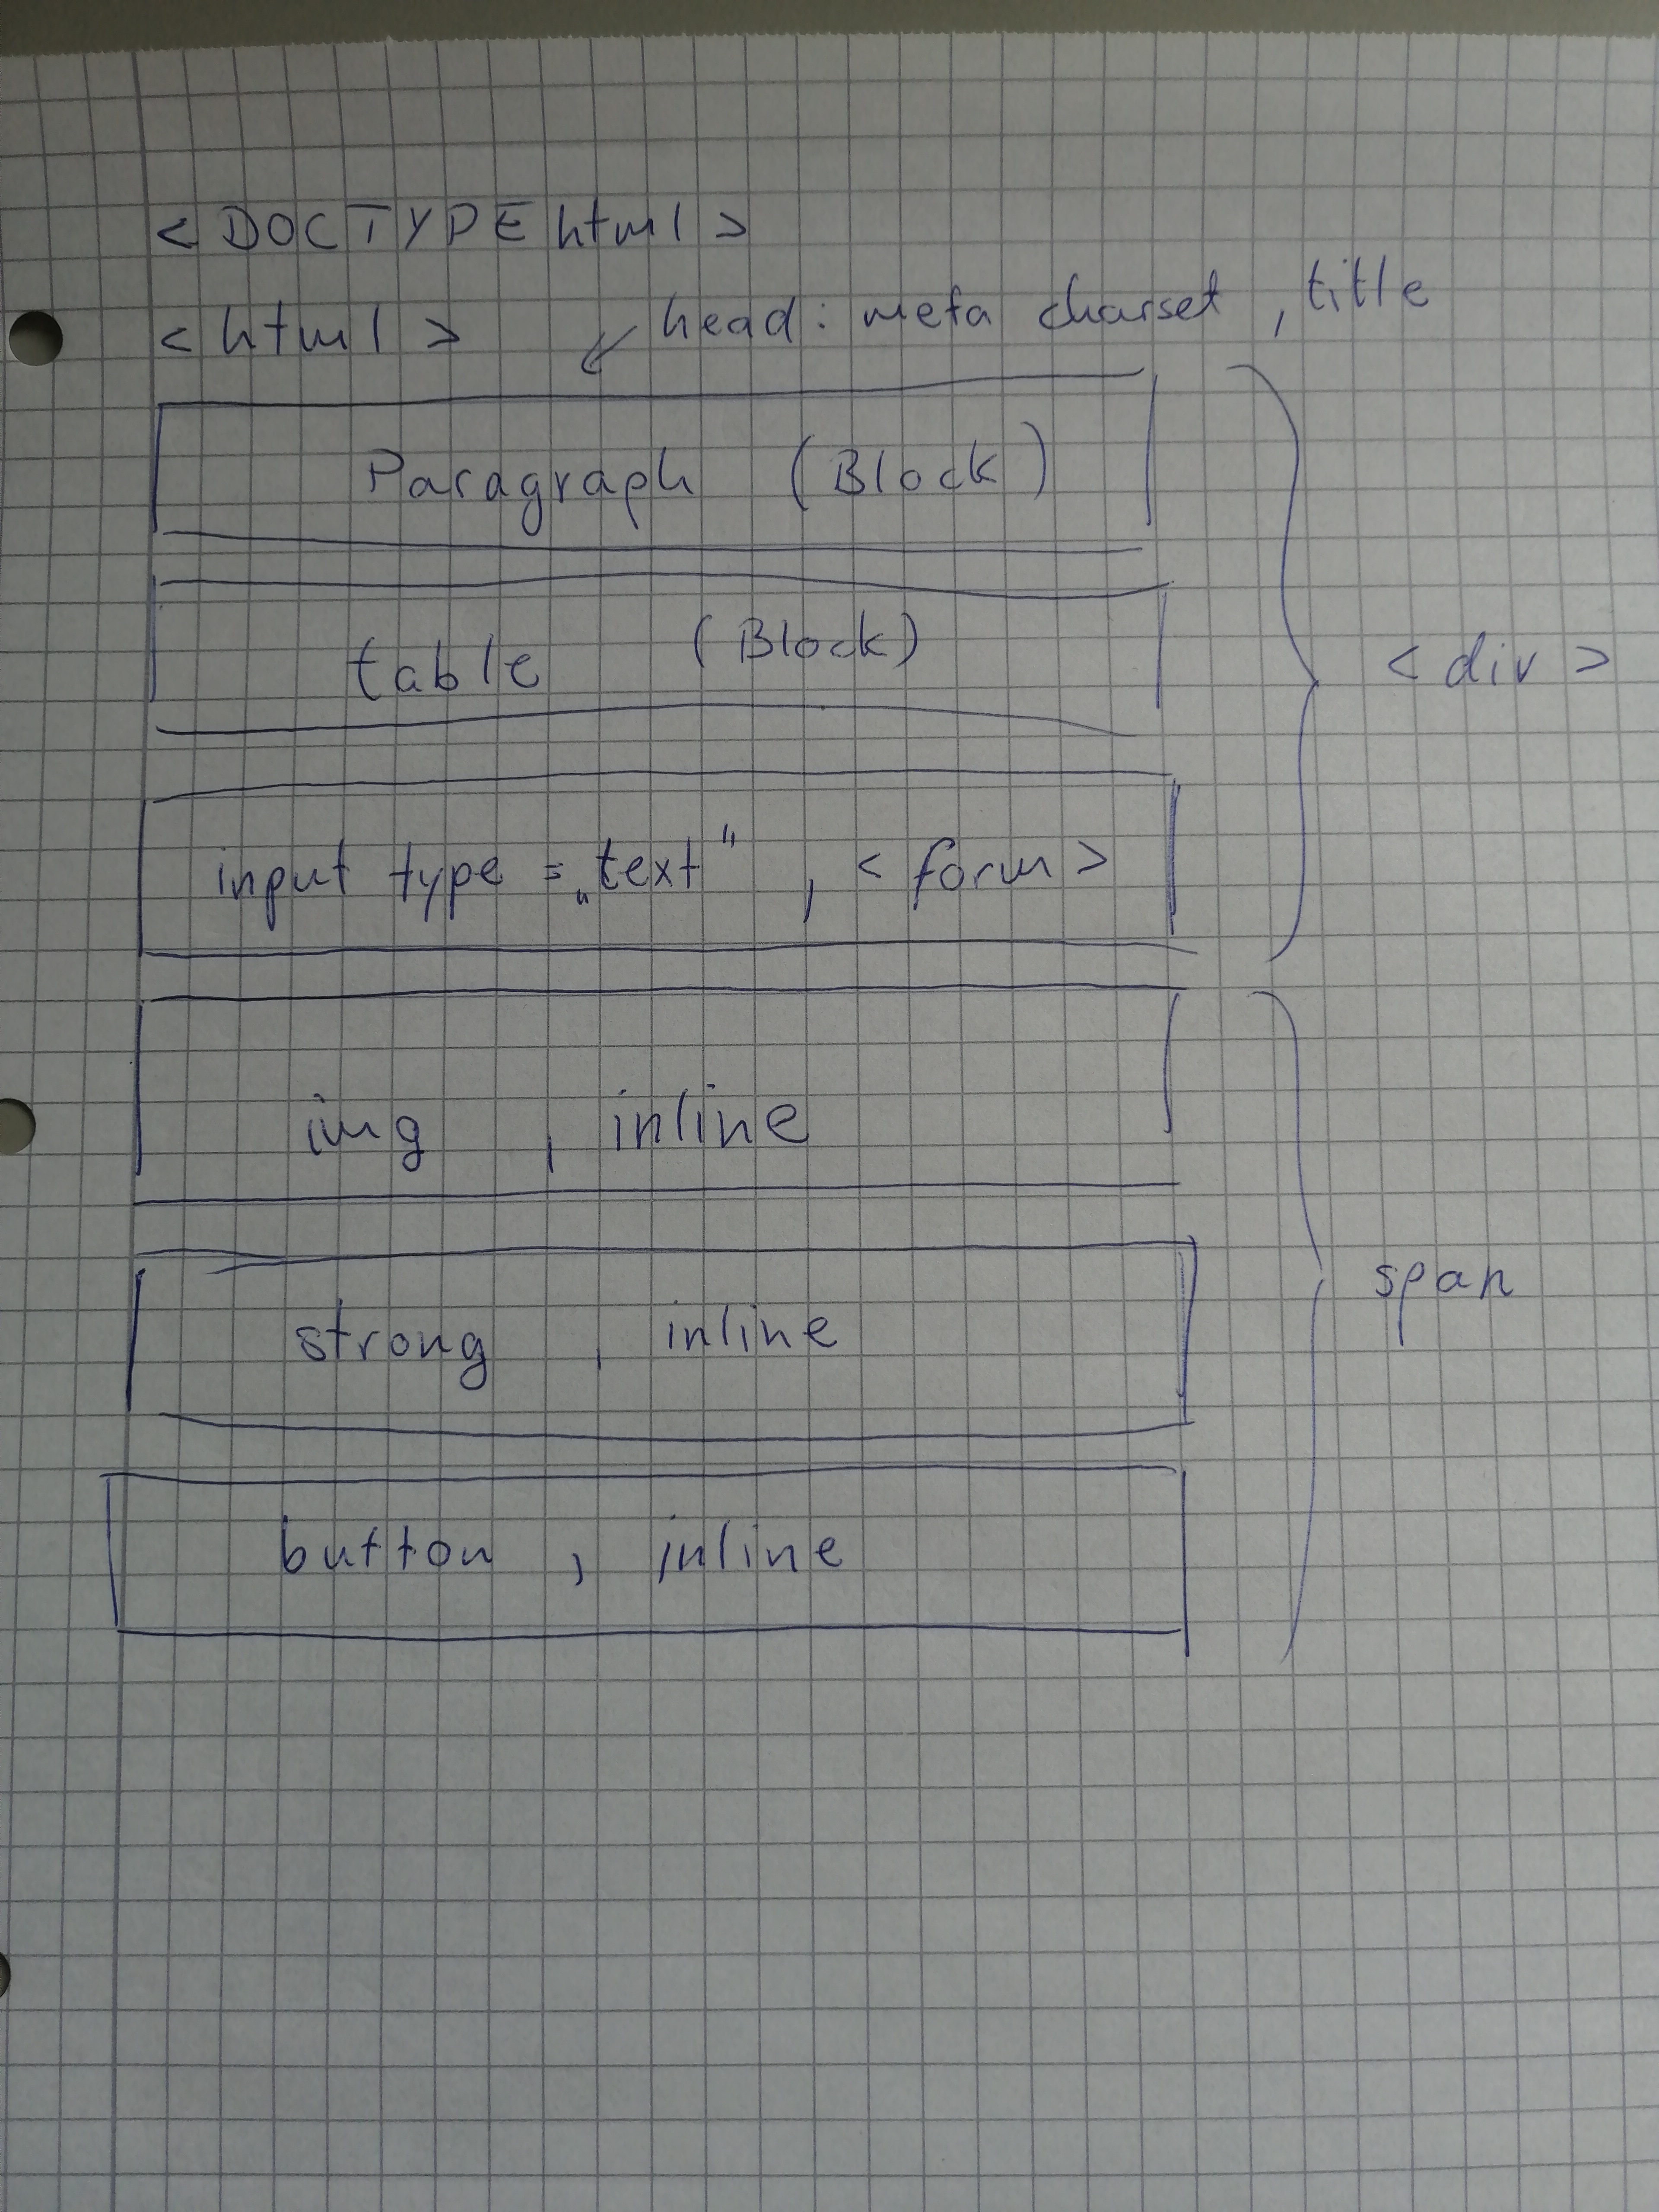 <DOCTYPE html>
<html>
head: meta charset, title
Paragraph (Block)
table (Block)
<div>
input type = „text", <form>
img, inline
span
strong, inline
button, inline